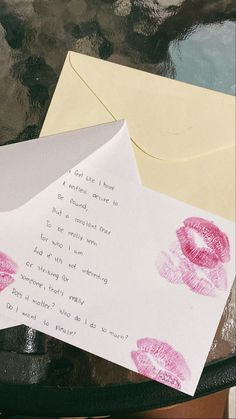 I feel like I have
A restless desire to
Be found,
But a constant fear
To be really seen
For who I am
And if it's not interesting
or striking for
Someone, that's really
Does it matter? Who do I do so much?
Do I want to please?